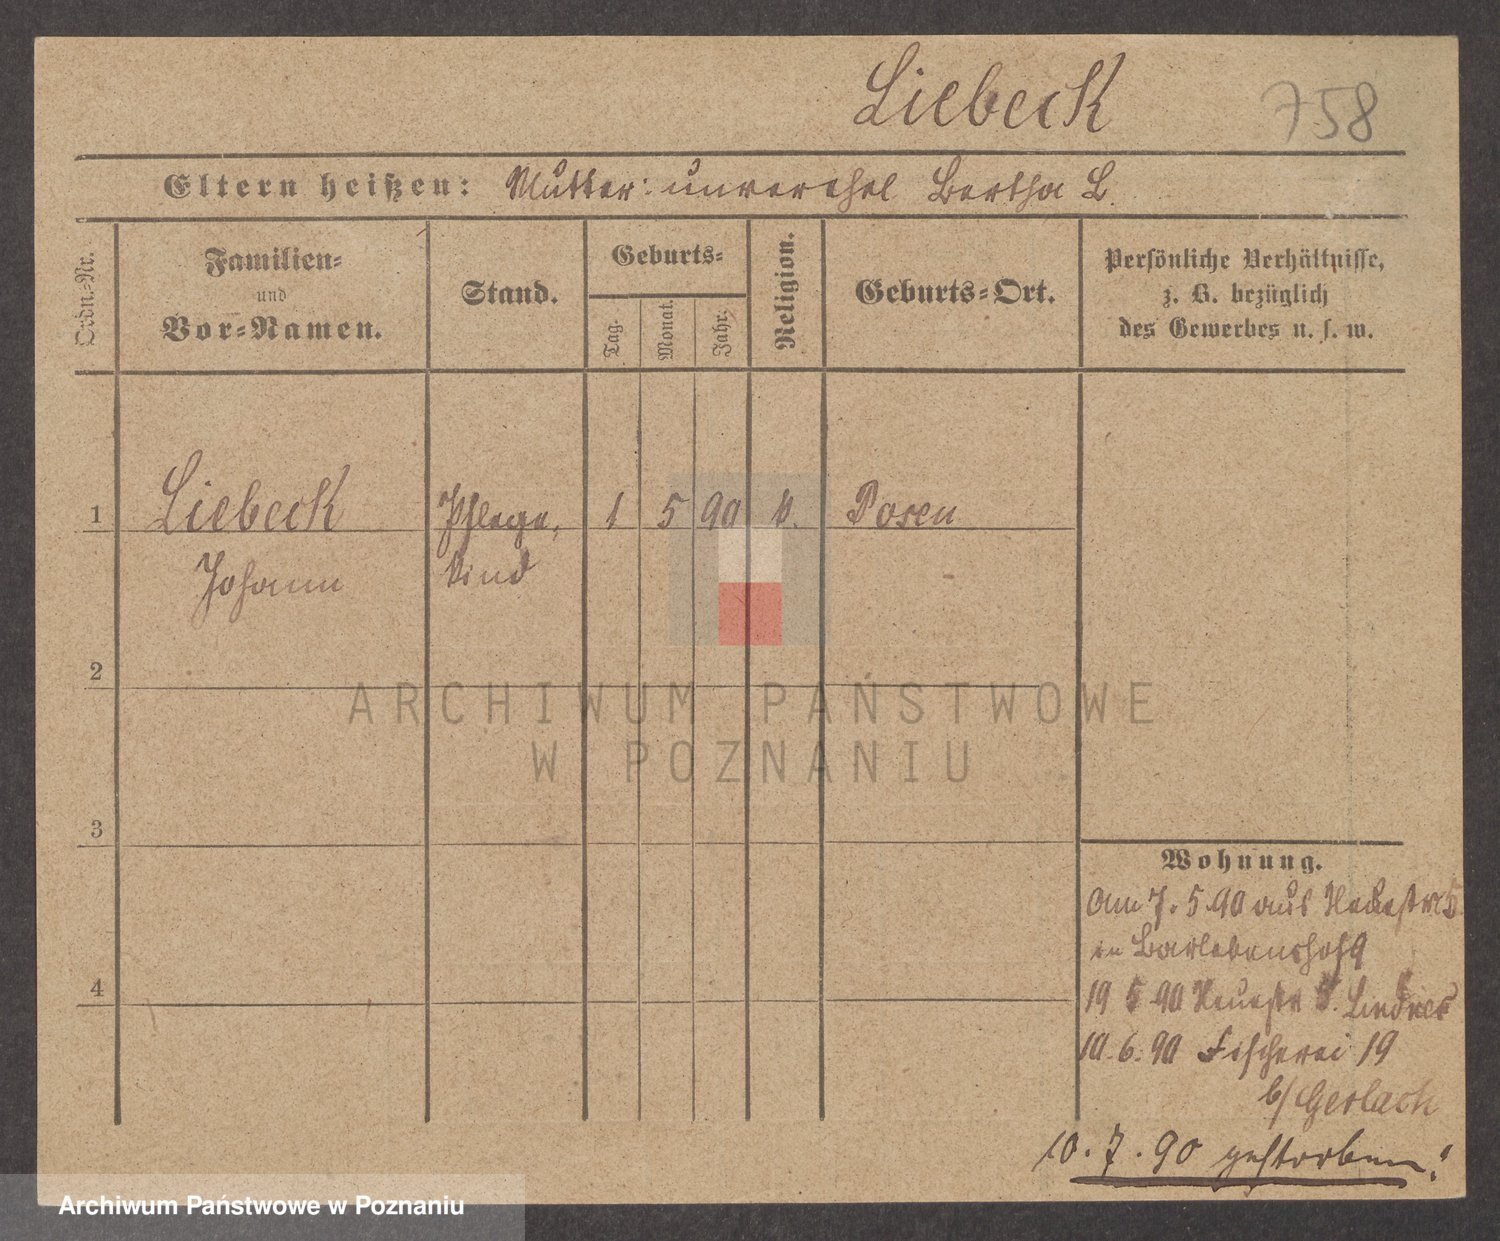 Liebeck 758
Eltern heißen: Mutter: unverehel Bertha L.
Ordn.-Nr.
Familien-
und
Vor-Namen.
Stand.
Geburts-
Tag.
Monat.
Jahr.
Religion.
Geburts-Ort.
Persönliche Verhältnisse,
z. B. bezüglich
des Gewerbes u. s. w.
1 Liebeck Pflege, 1 5 90 k. Posen
Johann kind
2
ARCHIWUM PAŃSTWOWE
W POZNANIU
3
Wohnung.
Am 7. 5 90 aus Neuestr 5
in Barlebenshof 9
4
19 5 90 Neuestr 5. Lindner
10. 6. 90 Fischerei 19
b/ Gerlach
10. 7. 90 gestorben!
Archiwum Państwowe w Poznaniu